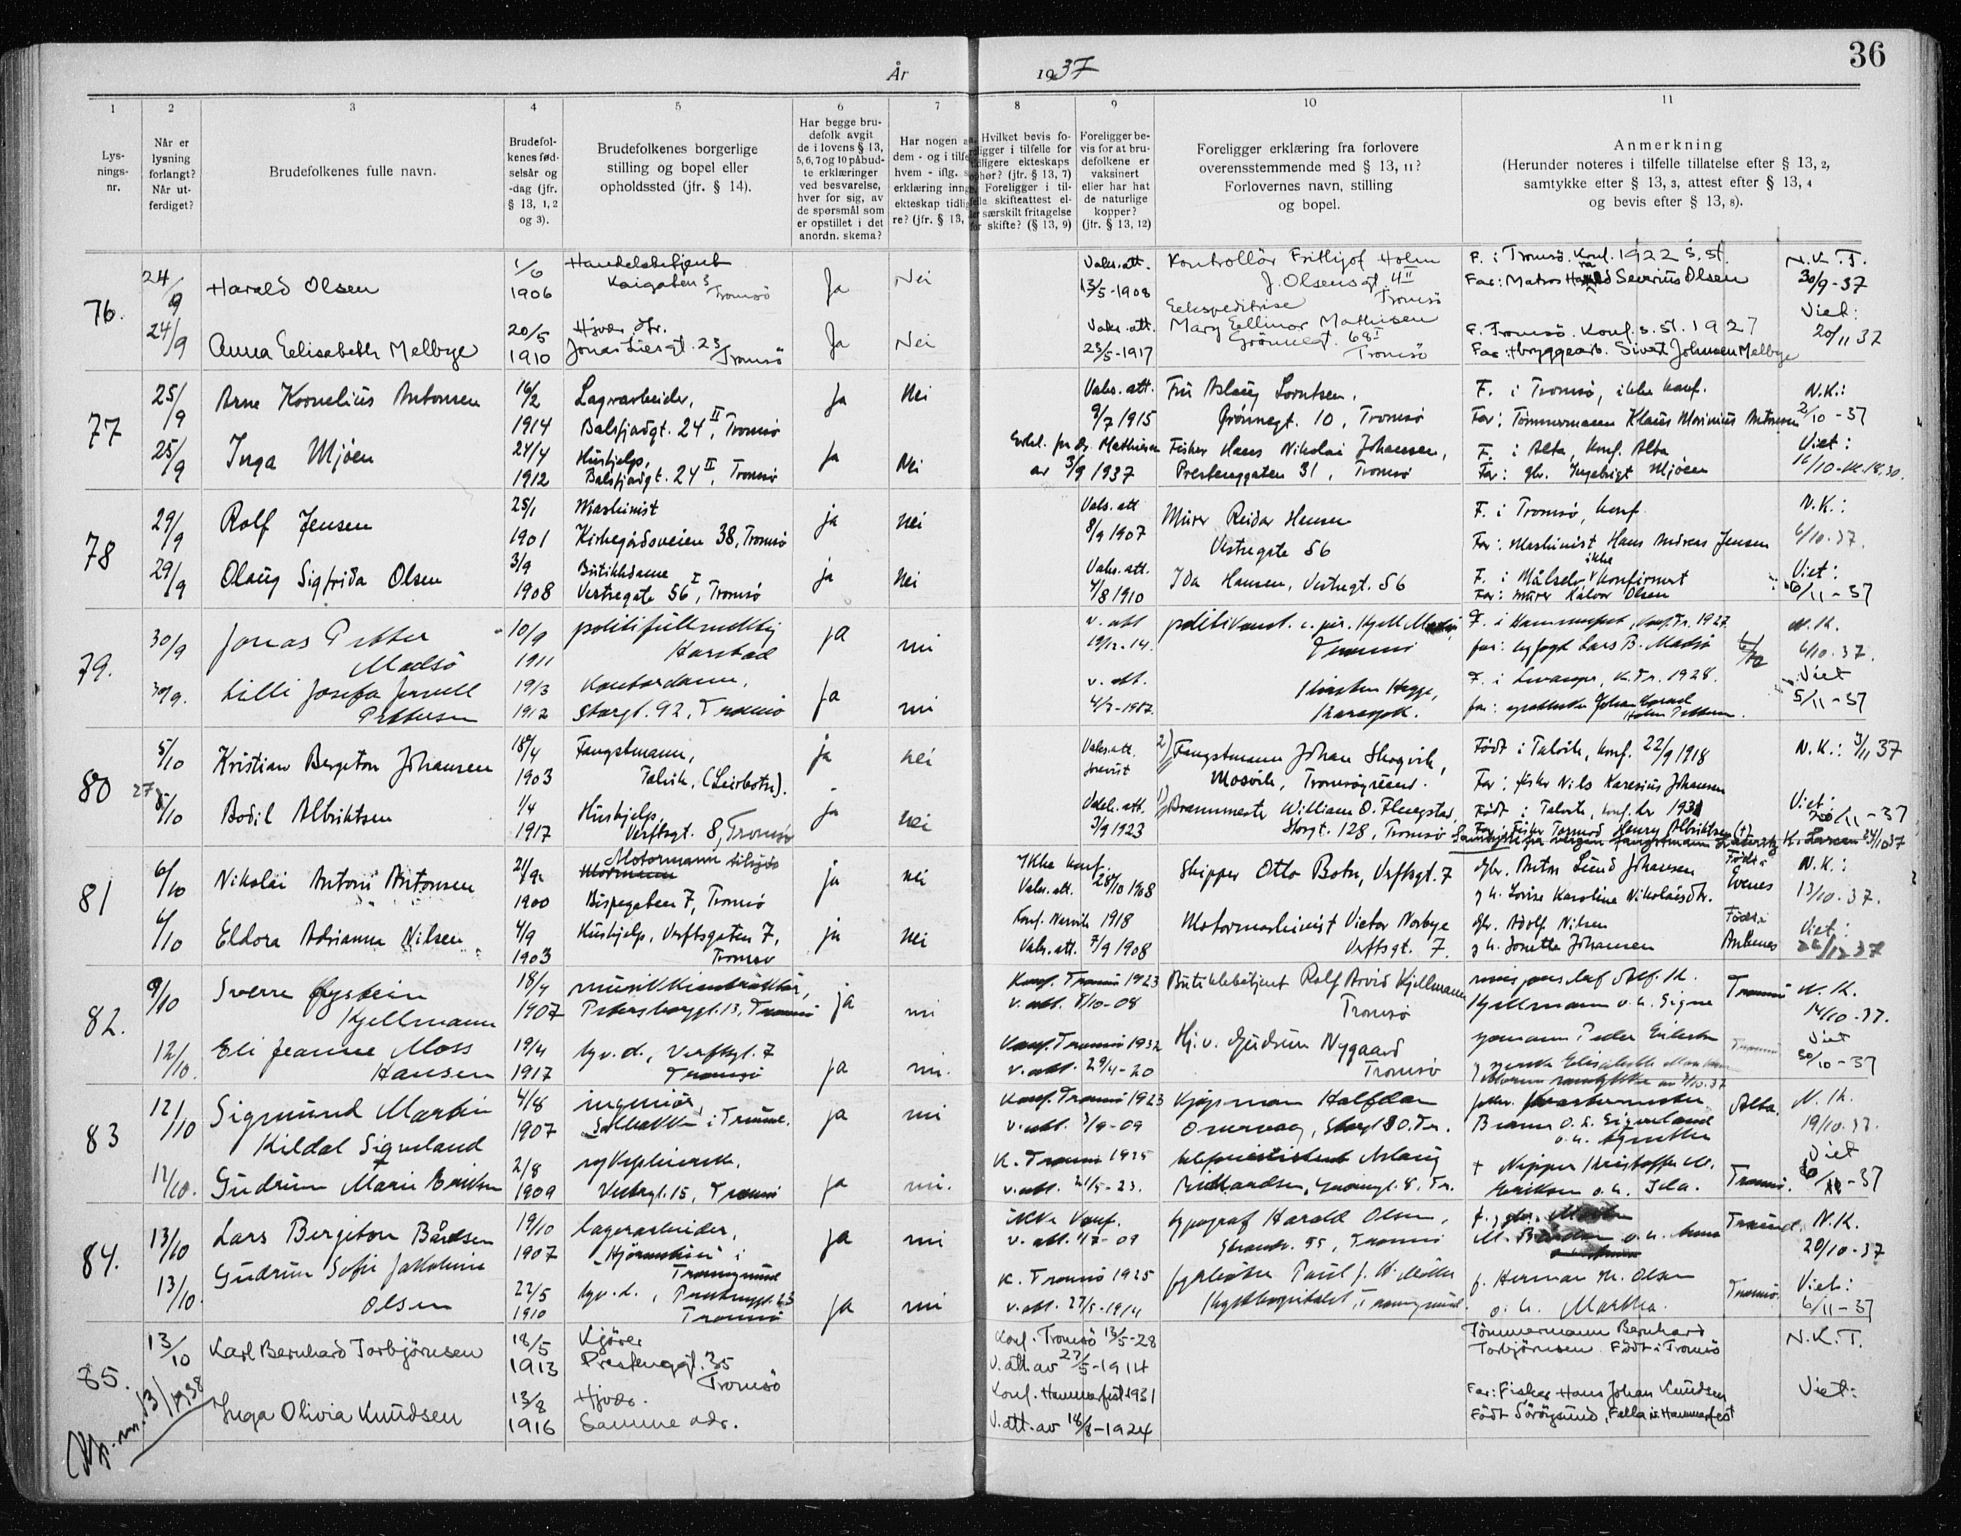 36
År 1937
1 2 3 4 5 6 7 8 9 10 11
Lys-
nings-
nr.
Når er
lysning
forlangt?
Når ut-
ferdiget?
Brudefolkenes fulle navn.
Brudefol-
kenes fød-
selsår og
-dag (jfr.
§ 13, 1, 2
og 3).
Brudefolkenes borgerlige
stilling og bopel eller
opholdssted (jfr. § 14).
Har begge bru-
defolk avgit
de i lovens § 13,
5, 6, 7 og 10 påbud-
te erklæringer
ved besvarelse,
hver for sig, av
de spørsmål som
er opstillet i det
anordn. skema?
Har nogen a
dem - og i tilfe
hvem - iflg. s
erklæring inng
ekteskap tidlig
re? (jfr. § 13,
Hvilket bevis fo-
religger i tilfelle for
tidligere ekteskaps
ophør? (jfr. § 13, 7)
Foreligger i til-
felle skifteattest el-
ler særskilt fritagelse
for skifte? (§ 13, 9)
Foreligger be-
vis for at bru-
defolkene er
vaksinert
eller har hat
de naturlige
kopper?
(jfr. § 13, 12)
Foreligger erklæring fra forlovere
overensstemmende med § 13, 11?
Forlovernes navn, stilling
og bopel.
Anmerkning
(Herunder noteres i tilfelle tillatelse efter § 13, 2,
samtykke efter § 13, 3, attest efter § 13, 4
og bevis efter § 13, 8).
76.
24/9 Harald Olsen 1/6 1906 Handelsbetjent Kaigaten 3 Tromsö Ja Nei Vaks.att. 13/5-1908 Kontrollör Frithjof Holm J. Olsensgt. 4 II Tromsö F. i Tromsö. Konf. 1922 s. st. Far: Matros Severius Olsen N.K.T. 30/9-37
24/9 Anna Elisabeth Melbye 20/5 1910 Hjvær. Jonas Liesgt. 23 Tromsö Ja Nei Vaks.att. 23/5-1917 Mary Ellinor Mathisen Grönnegt. 68 I Tromsö F. Tromsö. Konf. s. st. 1927 Far: bryggearb. Sivert Johnsen Melbye Viet: 20/11 37
77
25/9 Arne Kornelius Antonsen 16/2 1914 Lagerarbeider, Balsfjordgt. 24 II, Tromsö Ja Nei Vaks. att. 9/7 1915 Fru Aslaug Lorntsen, Grönnegt. 10, Tromsö F. i Tromsö, ikke konf. Far: Tömmermann Klaus Antonsen N.K.: 2/10-37
25/9 Inga Mjöen 24/4 1912 Hushjelp, Balsfjordgt. 24 II, Tromsö Ja Nei Erkl. fra dr. Mathisen av 3/9 1937 Fisker Hans Nikolai Johansen, Prestenggaten 31, Tromsö F. i Alta, konf. Alta Far: gbr. Ingebrigt Mjöen Viet: 16/10-kl. 18.30.
78
29/9 Rolf Jensen 25/1 1901 Maskinist Kirkegårdsveien 38, Tromsö ja nei Vaks. att 8/9 1907 Murer Reidar Hansen Vestregate 56 F. i Tromsö, konf. Far: Maskinist Hans Andreas Jensen N.K.: 6/10-37.
29/9 Olaug Sigfrida Olsen 3/9 1908 Butikkdame Vestregate 56 I, Tromsö ja nei Vaks. att. 4/8 1910 Ida Hansen, Vestregt. 56 F. i Målselv ikke konfirmert Far: murer Olsen Viet: 6/11-37
79.
30/9 Jonas Petter Madsö 10/9 1911 politifullmektig Harstad ja nei v. att 19/12-14. Kjell Madsö Tromsö F. i Hammerfest, konf. Tr. 1927 far: byfogd Lars B. Madsö N.K. 6/10-37.
30/9. Lilli Josefa Pettersen 19/3 1912 Kontordame, Storgt. 92, Tromsö ja nei v. att. Kirsten Hegge, F. i Levanger, K. Tr. 1928. far: apotheker Johan Viet 5/11-37
80
5/10 Kristian Bergeton Johansen 18/4 1903 Fangstmann, Talvik, (Leirbotn). ja nei Vaks.att. 2) Fangstmann Johan Skogvik, Mosvik, Tromsøysund. Född i Talvik, konf. 22/9 1918 Far: fisker Nils Karesius Johansen N.K.: 3/11 37
5/10 Bodil Albriktsen 1/4 1917 Hushjelp, Verftsgt. 8, Tromsø ja nei Vaks. att. 3/9 1923 1) Brannmester William O. Flægstad, Storgt. 128, Tromsö Född i Talvik, Far: Fisker Tormod Henry Albriktsen (+) Samtykke fra vergen fangstmann K. Larsen 24/10 37 Viet: 20/11-37
81
6/10 Nikolai Antoni Antonsen 21/9 1900 Motormann Bispegaten 7, Tromsö ja nei Ikke konf. Vaks. att. 28/10 1908 Skipper Otto Botn, Verftsgt. 7 gbr. Anton Lund Johansen g.h. Lovise Karoline Nikolaisdtr. Född i Evenes N.K.: 13/10-37.
6/10 Eldora Adrianna Nilsen 4/9 1903 Hushjelp, Verftsgaten 7, Tromsö ja nei Konf. Narvik 1918 Vaks. att. 7/9 1908 Motormaskinist Victor Norbye Verftsgt. 7. gbr. Adolf Nilsen g.h. Jonette Johansen Född i Ankenes Viet: 26/12 37
82.
9/10 Sverre Øystein Kjellmann 18/4 1907 musikkinstruktör, 13, Tromsö ja nei Konf. Tromsö 1923 v. att. 8/10-08 Butikkbetjent Rolf Arvid Kjellmann Tromsö Alf. K. Kjellmann o.h. Signe Tromsö N.K. 14/10-37.
12/10. Eli Jeanne Moss Hansen 19/4 1917 hjv. d., Verftsgt. 7 Tromsö ja nei. Konf. Tromsö 1932 v. att. 29/4-20 Hj.v. Gudrun Nygaard Tromsö Tromsö Viet 30/10-37
83
12/10 Sigmund Martin Kildal Sigveland 4/8 1907 ingeniör, i Tromsö. ja nei Konf. Tromsö 1923 v. att. 3/9-09 Kjöpman Halfdan Storgt 80. Tr. Sigveland Alta. N.K. 19/10-37.
12/10. Gudrun Marie Eriksen 2/8 1909 Vestregt. 15, Tromsö ja nei. K. Tromsö 1925 v. att. 21/5-23. Aslaug Richardsen, Tr. + Skipper Kristoffer M. Eriksen o.h. Ida. Tromsö. Viet 30/10-37
84.
13/10 Lars Bergeton Bårdsen 19/10 1907 lagerarbeider, i Tromsysund ja nei ikke konf. typograf Harald Olsen, Strandv. 55, Tromsö o.h. Anna N.K. 20/10-37
13/10. Gudrun Sofie Jakobine Olsen 22/5 1910 hjv. d., Prestenggt. 23 Tromsö ja nei K. Tromsö 1925 v. att. 27/5-1914 Paul J. H. Möller f. Herman M. Olsen o.h. Martha. Tromsö. Viet: 6/11-37
85.
13/10 Karl Bernhard Torbjörnsen 18/5 1913 Kjörer Prestenggt. 35 Tromsö Konf. Tromsö 13/5-28 V. att. av 27/5-1914 Tömmermann Bernhard Torbjörnsen Född i Tromsö N.K.T.
Inga Olivia Knudsen 13/8 1916 Hjvær. Samme adr. Konf. Hammerfest 1931 V. att. av 18/8-1924 Far: Fisker Hans Johan Knudsen Född Söröysund, Hammerfest Viet:
13/1938